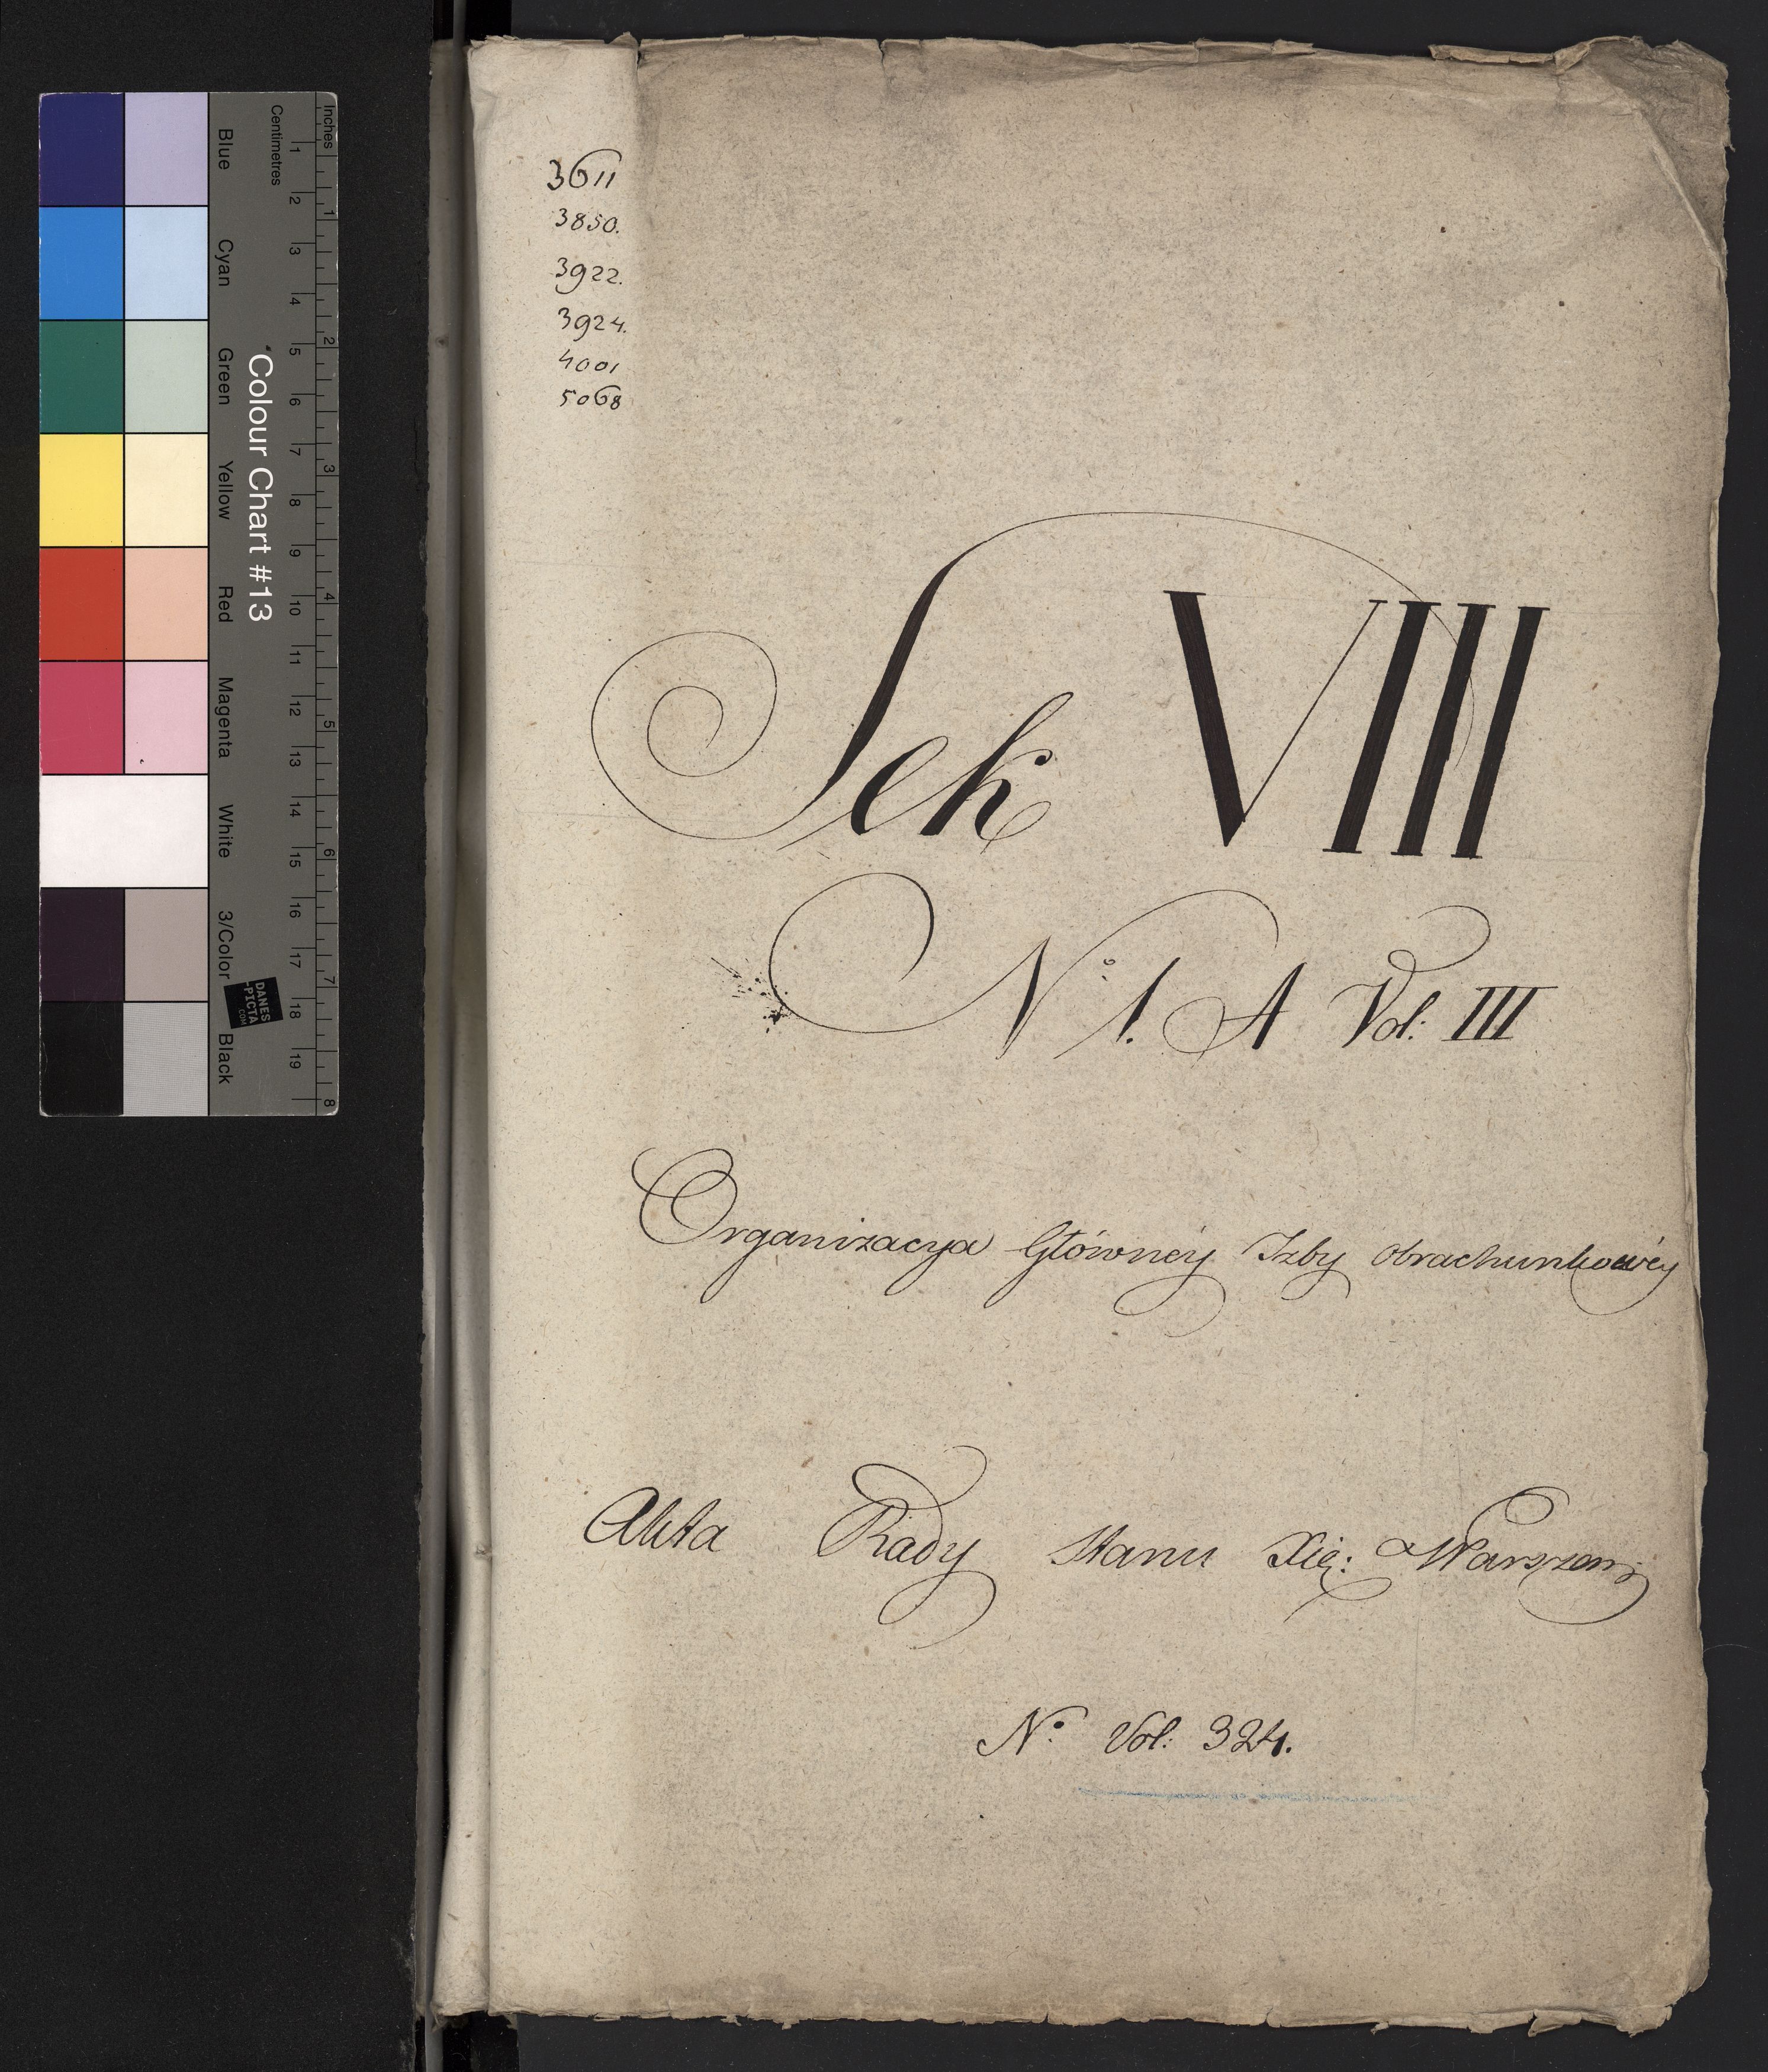 3611
3850.
3922.
3924.
4001
5068
Sek VIII
No 1. A Vol: III
Organizacya Główney Izby Obrachunkowéy
Akta Rady Stanu Xię: Warszaw:
No Vol: 324.
Inches
Centimetres
1 2 3 4 5 6 7 8 9 10 11 12 13 14 15 16 17 18 19
1 2 3 4 5 6 7 8
Colour Chart #13
Blue Cyan Green Yellow Red Magenta White 3/Color Black
DANES
-PICTA
.COM